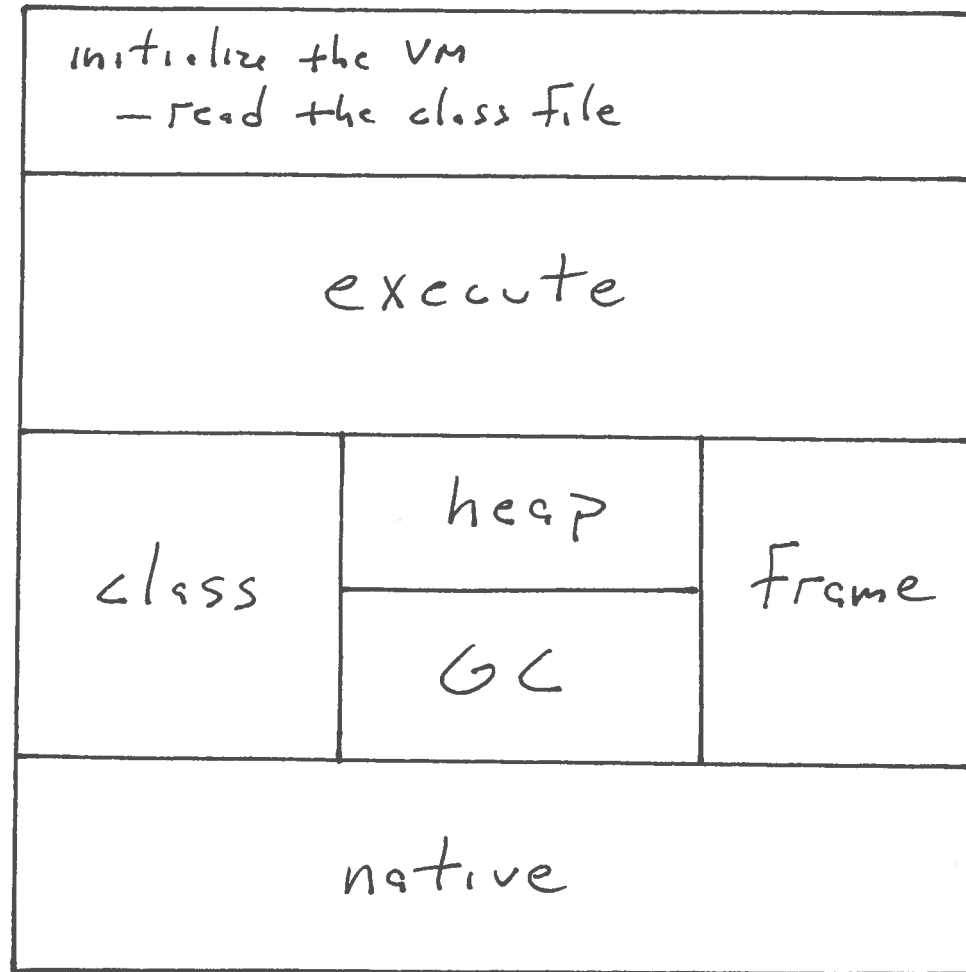 initialize the VM
- read the class file
execute
class
heap
frame
GC
native